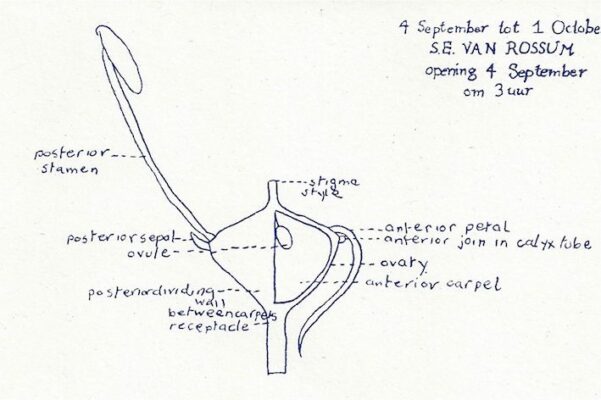 4 September tot 1 Octobe
S.E. VAN ROSSUM
opening 4 September
om 3 uur
posterior
stamen
stigma
style
posterior sepal
ovule
anterior petal
anterior join in calyx tube
ovary
anterior carpel
posterior dividing
wall
between carpels
receptacle